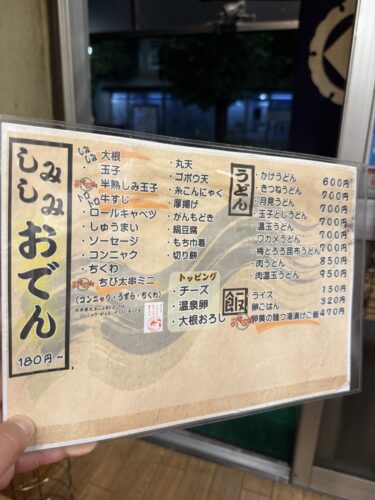 しみしみおでん
180円~
しみしみ 大根
玉子
半熟しみ玉子
トロトロ 牛すじ
・ロールキャベツ
・しゅうまい
・ソーセージ
・コンニャク
・ちくわ
ちび太串ミニ
(コンニャク・うずら・ちくわ)
・丸天
・ゴボウ天
・糸こんにゃく
・厚揚げ
・がんもどき
・絹豆腐
・もち巾着
・切り餅
トッピング
・チーズ
・温泉卵
・大根おろし
うどん
・かけうどん 600円
・きつねうどん 700円
・月見うどん 700円
・玉子とじうどん 700円
・温玉うどん 700円
・ワカメうどん 700円
・梅とろろ昆布うどん 750円
・肉うどん 850円
・肉温玉うどん 950円
飯
ライス 150円
卵ごはん 320円
卵黄の麺つ湯漬けご飯 470円